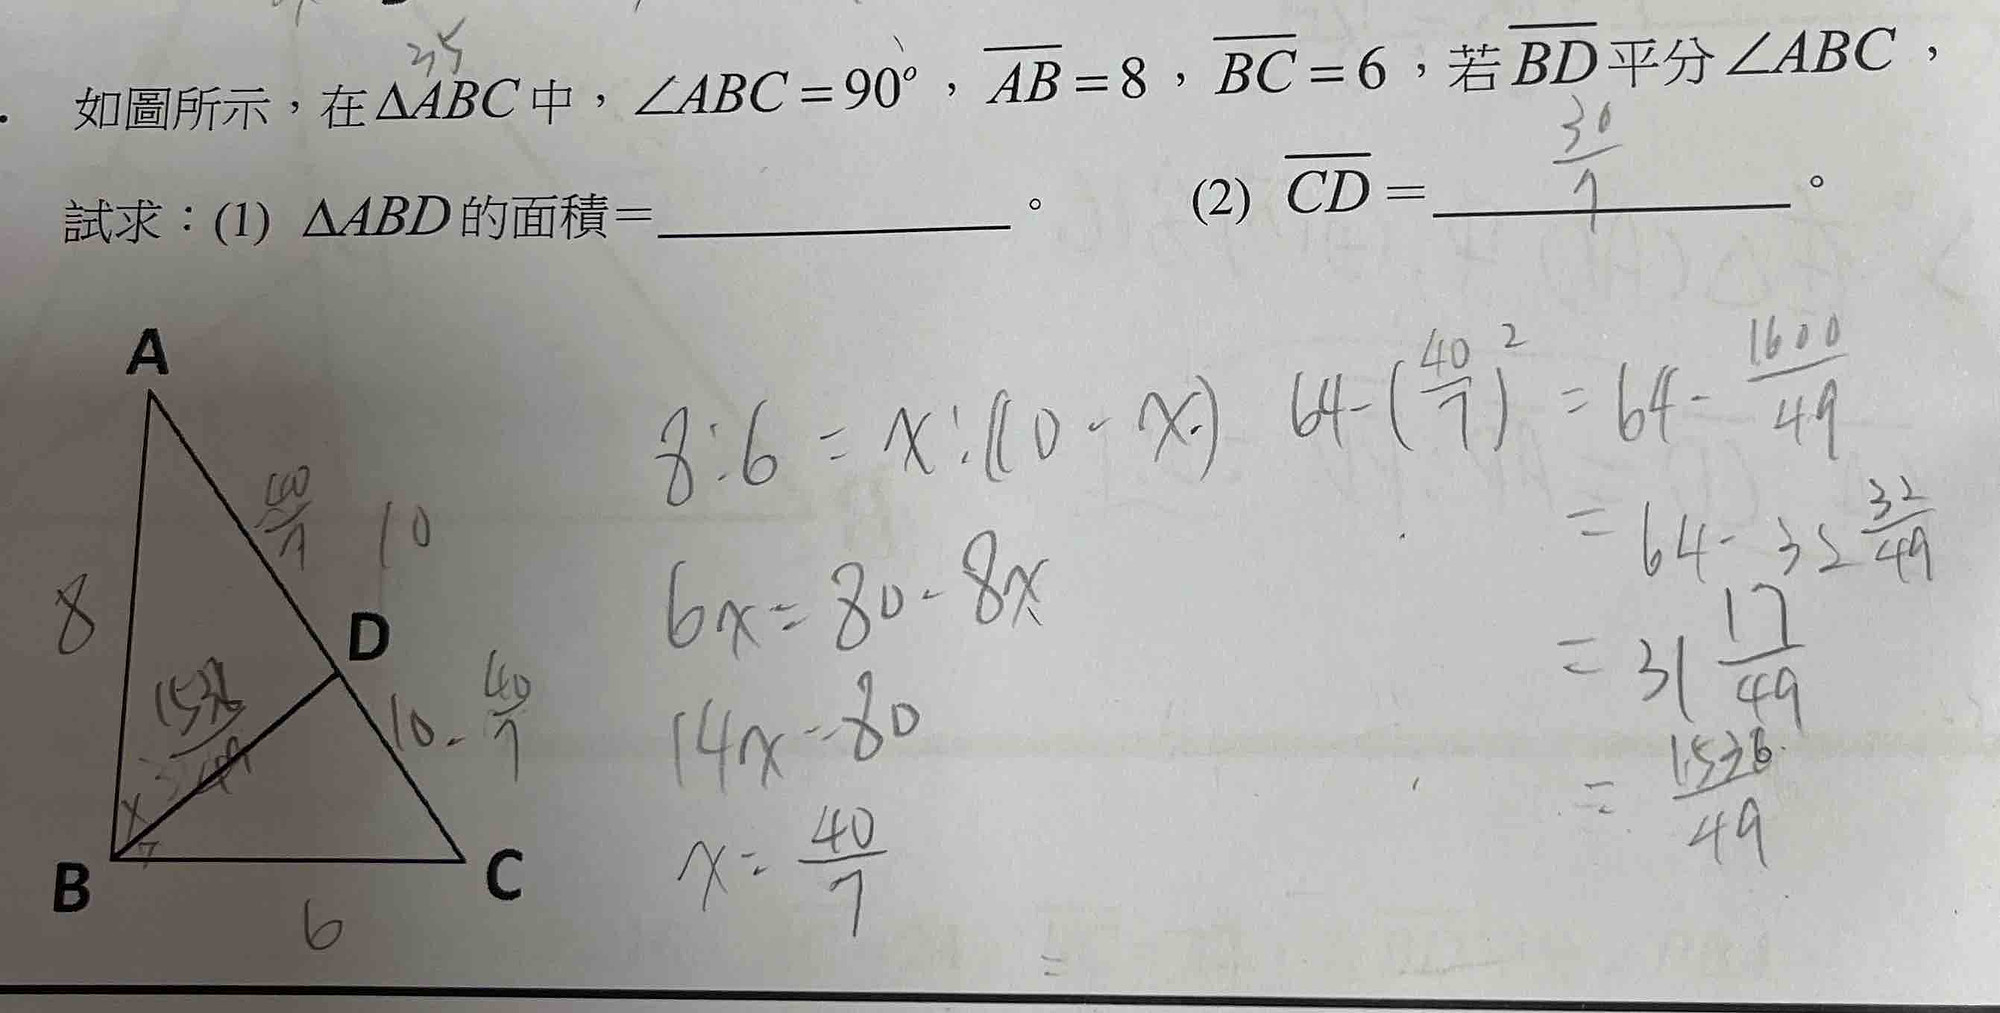 35
如圖所示，在ΔABC中，∠ABC=90°，AB=8，BC=6，若BD平分∠ABC，
試求：(1) ΔABD的面積=__________。 (2) CD=__________。
30/7
A
40/7
10
8
D
10-40/7
1536/49
B
C
6
8:6=x:(10-x)
6x=80-8x
14x=80
x=40/7
64-(40/7)²=64-1600/49
=64-32 32/49
=31 17/49
=1536/49